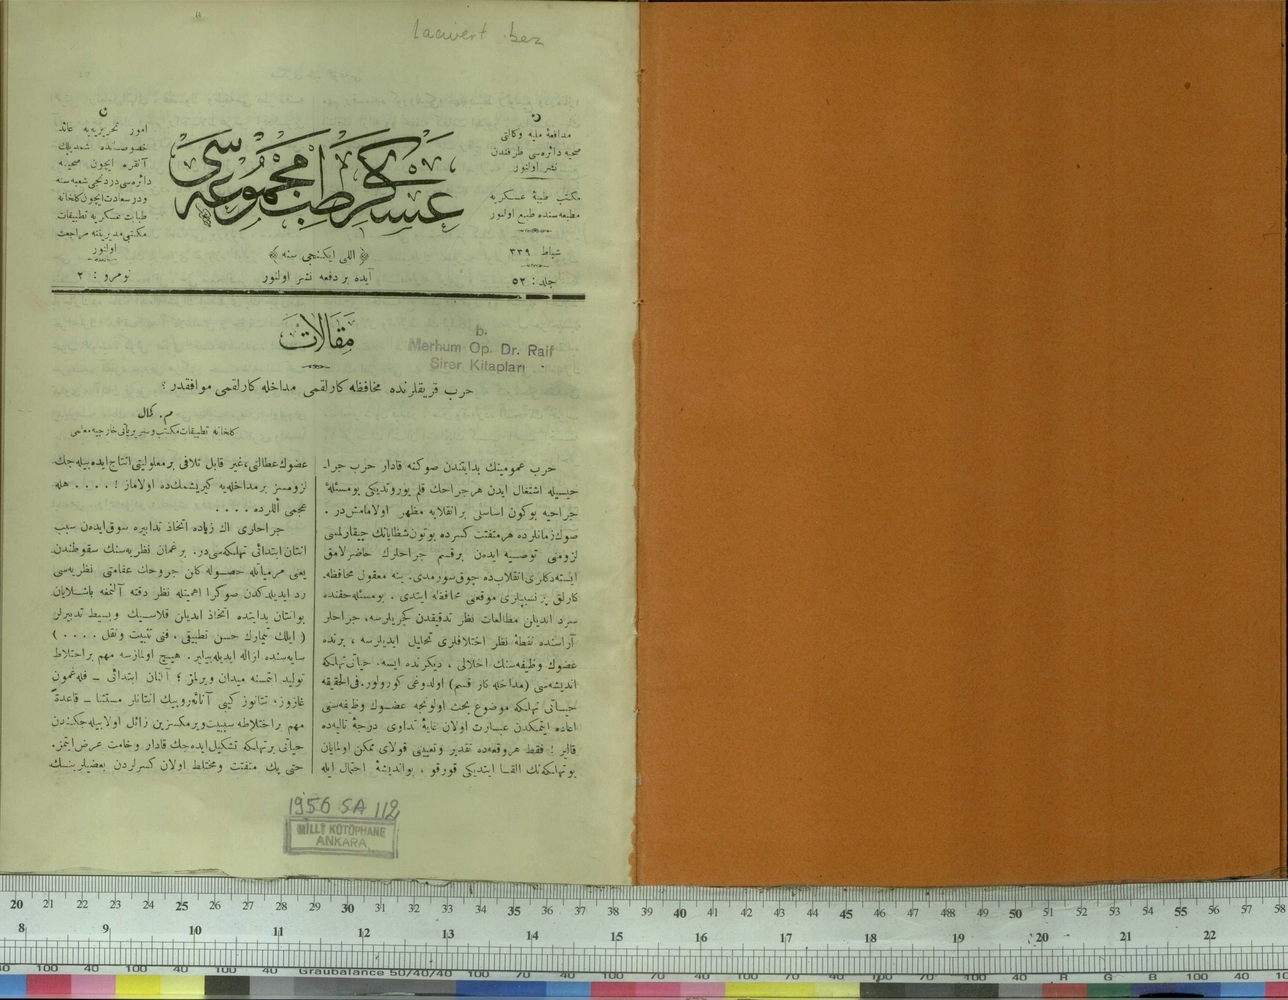 lacivert bez
مدافعهٔ ملیه وکالتی
صحیه دائره‌سی طرفندن
نشر اولنور
مکتب طبیهٔ عسکریه
مطبعه‌سنده طبع اولنور
شباط ٣٣٩
جلد : ٥٢
عسکری طب مجموعه‌سی
﴿ اللی ایکنجی سنه ﴾
آیده بر دفعه نشر اولنور
امور تحریریه‌یه عائد
خصوصنده شمدیلك
آنقره ایچون صحیه
دائره‌سی دردنجی شعبه‌سنه
ودرسعادت ایچون کلخانه
طبابت عسکریه تطبیقات
مکتبی مدیریتنه مراجعت
اولنور
نومرو : ٢
مقالات
b.
Merhum Op. Dr. Raif
Sirer Kitapları
حرب قریقلرنده محافظه کارلقمی مداخله کارلقمی موافقدر ؟
م. کمال
کلخانه تطبیقات مکتب وسریریاتی خارجیه معلمی
حرب عمومینك بدایتندن صوکنه قادار حرب جرا۔
حیسیله اشتغال ایدن هر جراحك قلم یوروتدیکی بومسئلهٔ
جراحیه بوکون اساسلی بر انقلابه مظهر اولامامش‌در .
صوك زمانلرده هر متفتت کسرده بوتون شظایانك چیقارلمسی
لزومنی توصیه ایدەن برقسم جراحلرك حاضرلامق
ایسته‌دکلری انقلاب‌ده چوق سورمدی. ینه معقول محافظه۔
کارلق پرنسیپلری موقعنی محافظه ایتدی . بومسئله حقنده
سرد ایدیلن مطالعات نظر تدقیقدن کچریلرسه، جراحلر
آراسنده نقطهٔ نظر اختلافلری تحلیل ایدیلرسه ، برنده
عضوك وظیفه‌سنك اخلالی ، دیکرنده ایسه. حیاتی تهلکه
اندیشه‌سی (مداخله کار قسم) اولدوغی کورولور. فی‌الحقیقه
حیاتی تهلکه موضوع بحث اولونجه عضوك وظیفه‌سنی
اعاده ایتمکدن عبارت اولان غایهٔ تداوی درجهٔ تالیه‌ده
قالیر ! فقط هر وقعه‌ده تقدیر وتعیینی قولای ممکن اولمایان
بو تهلکه‌نك القا ایتدیکی قورقو ، بواندیشهٔ احتمال ایله
عضوك عطالنی، غیر قابل تلافی بر معلولیتی انتاج ایده‌بیله‌جك
لزومسز بر مداخله‌یه کیریشمك‌ده اولاماز ! . . . . هله
عجمی اللرده . . . .
جراحلری اك زیاده اتخاذ تدابیره سوق ایدەن سبب
انتان ابتدائی تهلکه‌سی‌در. برغمان نظریه‌سنك سقوطندن
یعنی مرمیاتله حصوله کلن جروحك عقامتی نظریه‌سی
رد ایدیلدکدن صوکرا اهمیتله نظر دقته آلنمغه باشلایان
بوانتان بدایتده اتخاذ ایدیلن قلاسیك وبسیط تدبیرلر
( ایلك تیمارك حسن تطبیقی ، فنی تثبیت ونقل . . . . )
سایه‌سنده ازاله ایدیله‌بیلیر. هیچ اولمازسه مهم بر اختلاط
تولید ایتمسنه میدان ویرلمز ؛ انتان ابتدائی – فله‌غمون
غازوز، تتانوز کبی آنائه‌روبیك انتانلر مستثنا – قاعدةً
مهم بر اختلاطه سببیت ویرمکسزین زائل اولابیله‌جکندن
حیاتی برتهلکه تشکیل ایده‌جك قادار وخامت عرض ایتمز.
حتی پك متفتت ومختلط اولان کسرلردن بعضیلرینك
1956 SA 112
MİLLÎ KÜTÜPHANE
ANKARA
20 21 22 23 24 25 26 27 28 29 30 31 32 33 34 35 36 37 38 39 40 41 42 43 44 45 46 47 48 49 50 51 52 53 54 55 56 57 58
8 9 10 11 12 13 14 15 16 17 18 19 20 21 22
Graubalance 50/40/40